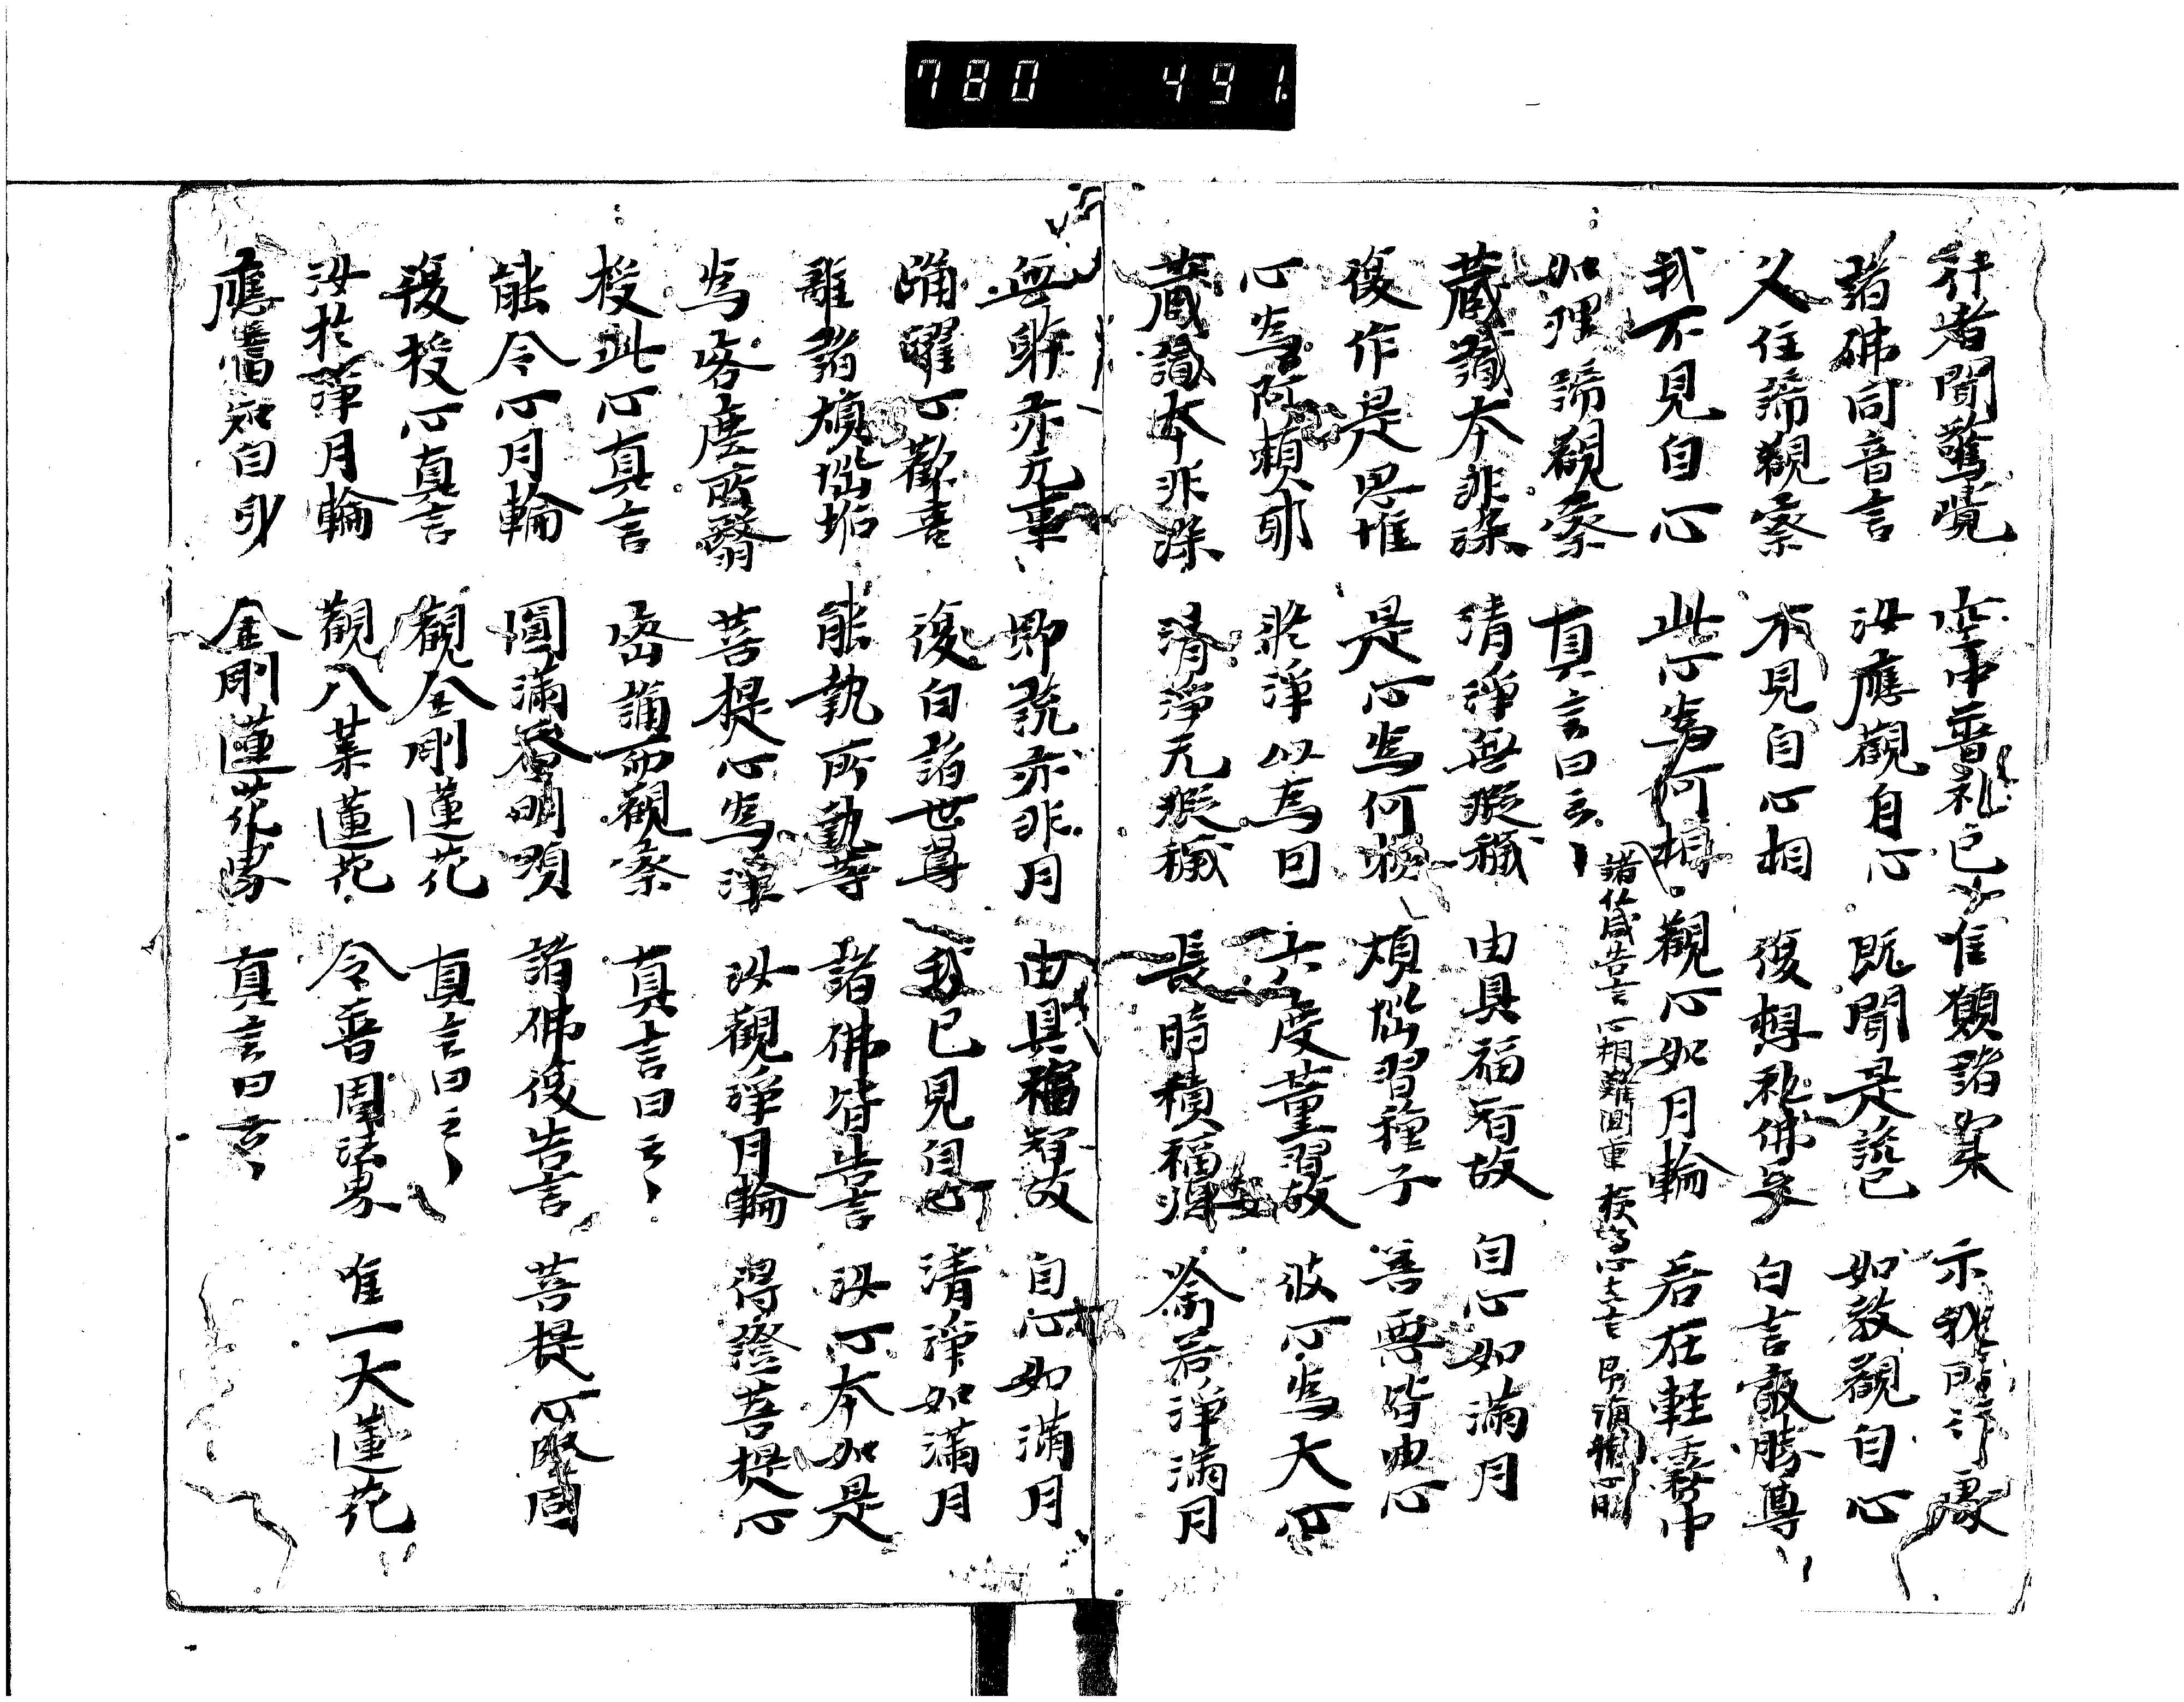 780 491
行者聞驚覺 空中普礼已 唯願諸如來 示我所行處
諸佛同音言 汝應觀自心 既聞是説已 如教觀自心
久住諦觀察 不見自心相 復想礼佛足 白言最勝尊
我不見自心 此心為何相 諸佛咸告言 心相難 授
觀心如月輪 若在軽霧中
如理諦觀察 真言曰云々
藏識本非染 清淨無瑕穢 由具福智故 自心如滿月
復作是思惟 是心為何物 煩惱習種子 善惡皆由心
心為阿頼耶 修淨以為因 六度薫習故 彼心為大心
蔵識本非染 清淨无瑕穢 長時積福智 喻若淨滿月
無躰亦无事 即説亦非月 由具福智故 自心如滿月
踊躍心歡喜 復白諸世尊 我已見自心 清淨如滿月
離諸煩惱垢 能執所執等 諸佛皆告言 汝心本如是
為客塵所翳 菩提心為淨 汝觀淨月輪 得證菩提心
授此心真言 密誦而觀察 真言曰云々
能令心月輪 圓滿益明顕 諸佛復告言 菩提心堅固
復授心真言 觀金剛蓮花 真言曰云々
汝於淨月輪 觀八葉蓮花 令普周法界 唯一大蓮花
應當知自身 金剛蓮花界 真言曰云々